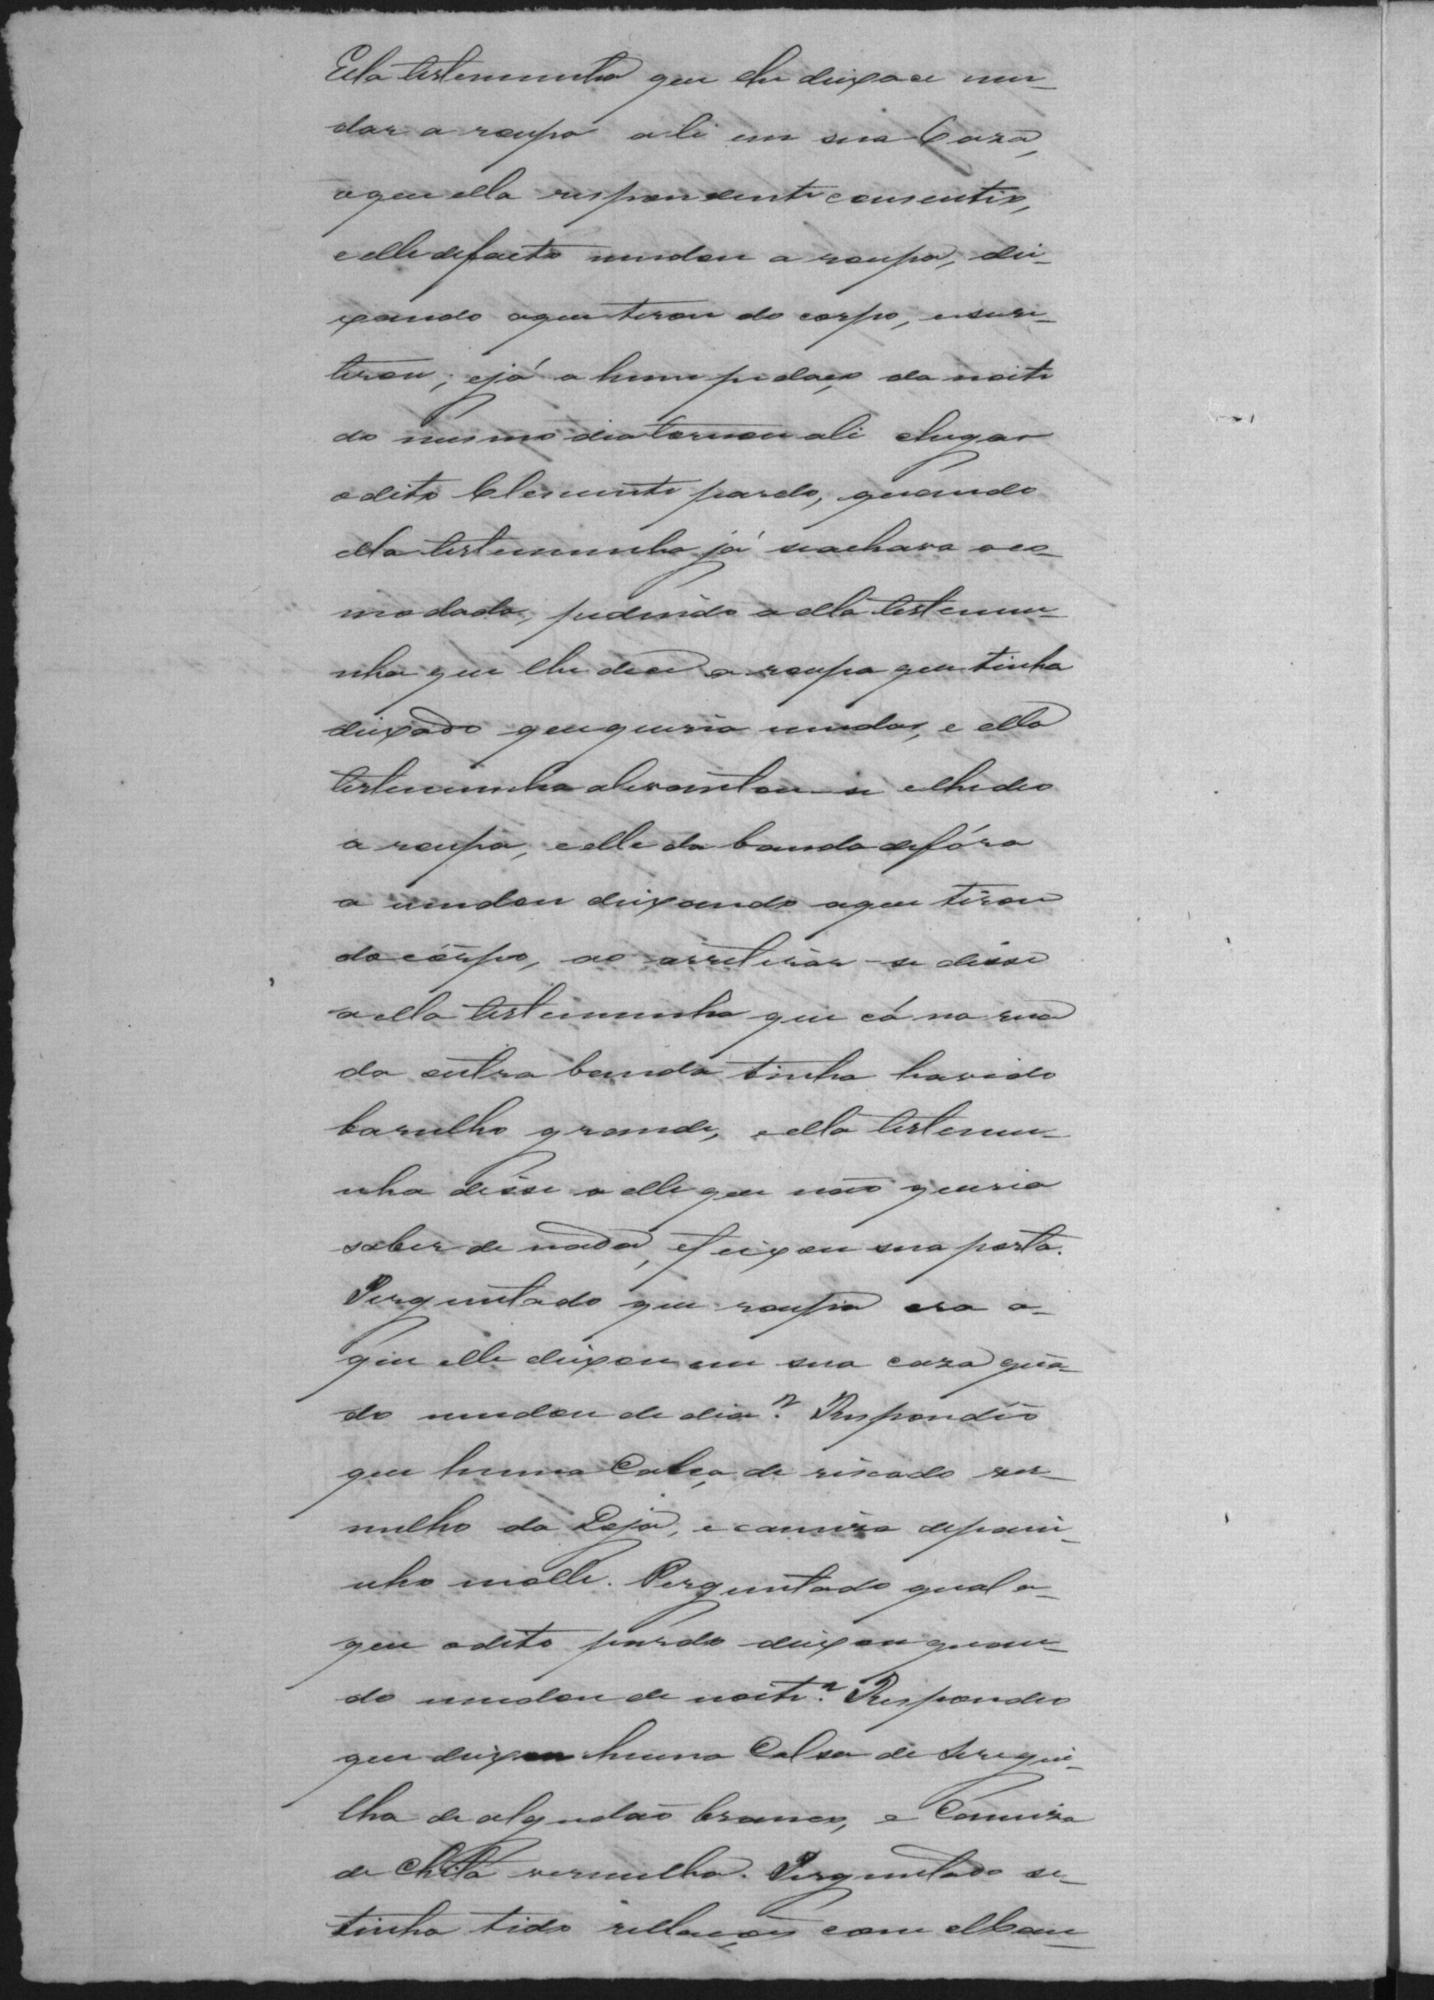 Ella testemunha que lhe deixace mu-
dar a roupa ali em sua Caza,
oque ella respondente consentio,
e elle defacto mudou a roupa, dei-
xando aque tirou do corpo, esere-
tirou; ejá a hum pedaço da noite
do mesmo dia tornou ali chegar
odito Clemente pardo, quando
ella testemunha já seachava aco-
modada, pedindo a ella testemu-
nha que lhe dece a roupa que tinha
deixado que queria mudar, e ella
testemunha alevantou-se elhedeo
a roupa, eelle da banda defóra
a mudou deixando aque tirou
do corpo, ao arretirar-se disse
a ella testemunha que cá na rua
da outra banda tinha havido
barulho grande, eella testemu-
nha disse a elle que não queria
saber de nada, efeixou sua porta.
Perguntado que roupa era a-
que elle deixou em sua caza quã-
do mudou de dia? Respondeo
que huma Calça de riscado ver-
melho da Loja, e camiza depani-
nho molle. Perguntado qual a-
que odito pardo deixou quan-
do mudou de noite? Respondeo
que deixou huma Calsa de Seregui-
lha de algudão branco, e Camiza
de Chita vermelha. Perguntado se-
tinha tido rellações com elle em